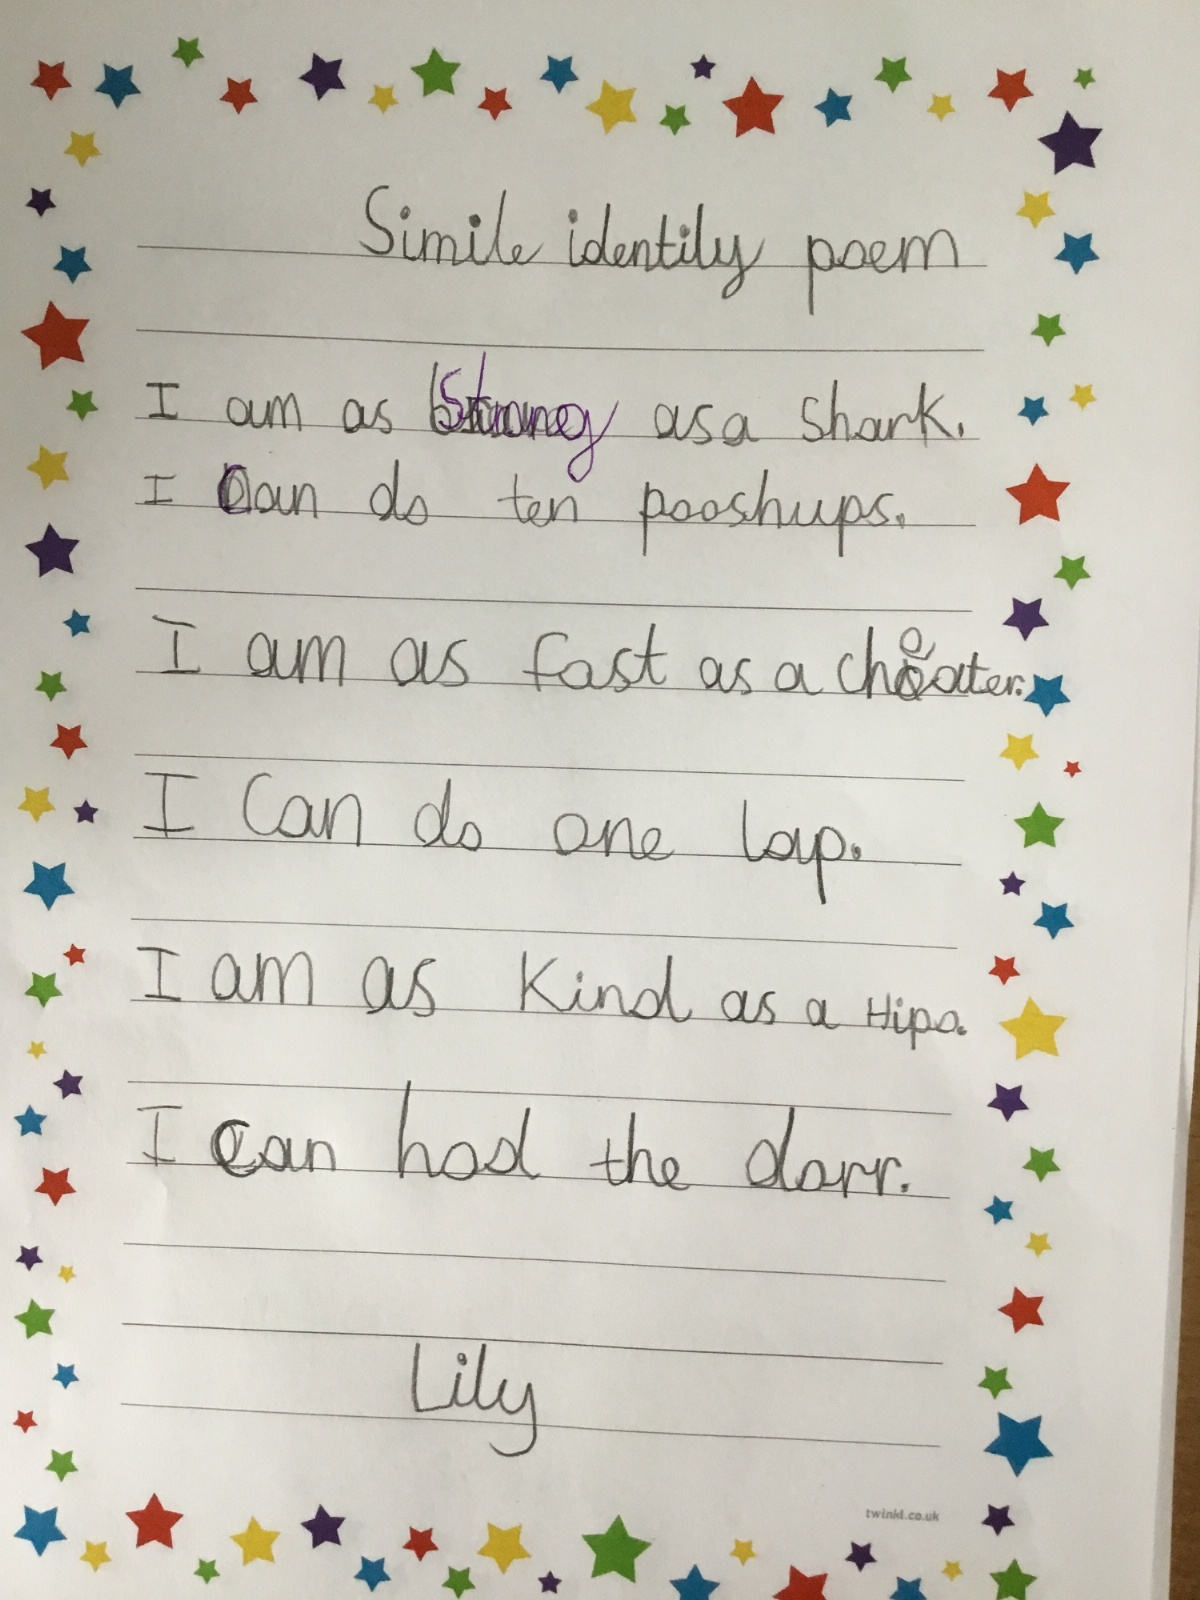 Simile identily poem
I am as Strong as a shark.
I Can do ten pooshups.
I am as fast as a cheater.
I Can do one lap.
I am as Kind as a Hipo.
I Can hod the dorr.
Lily
twinkl.co.uk